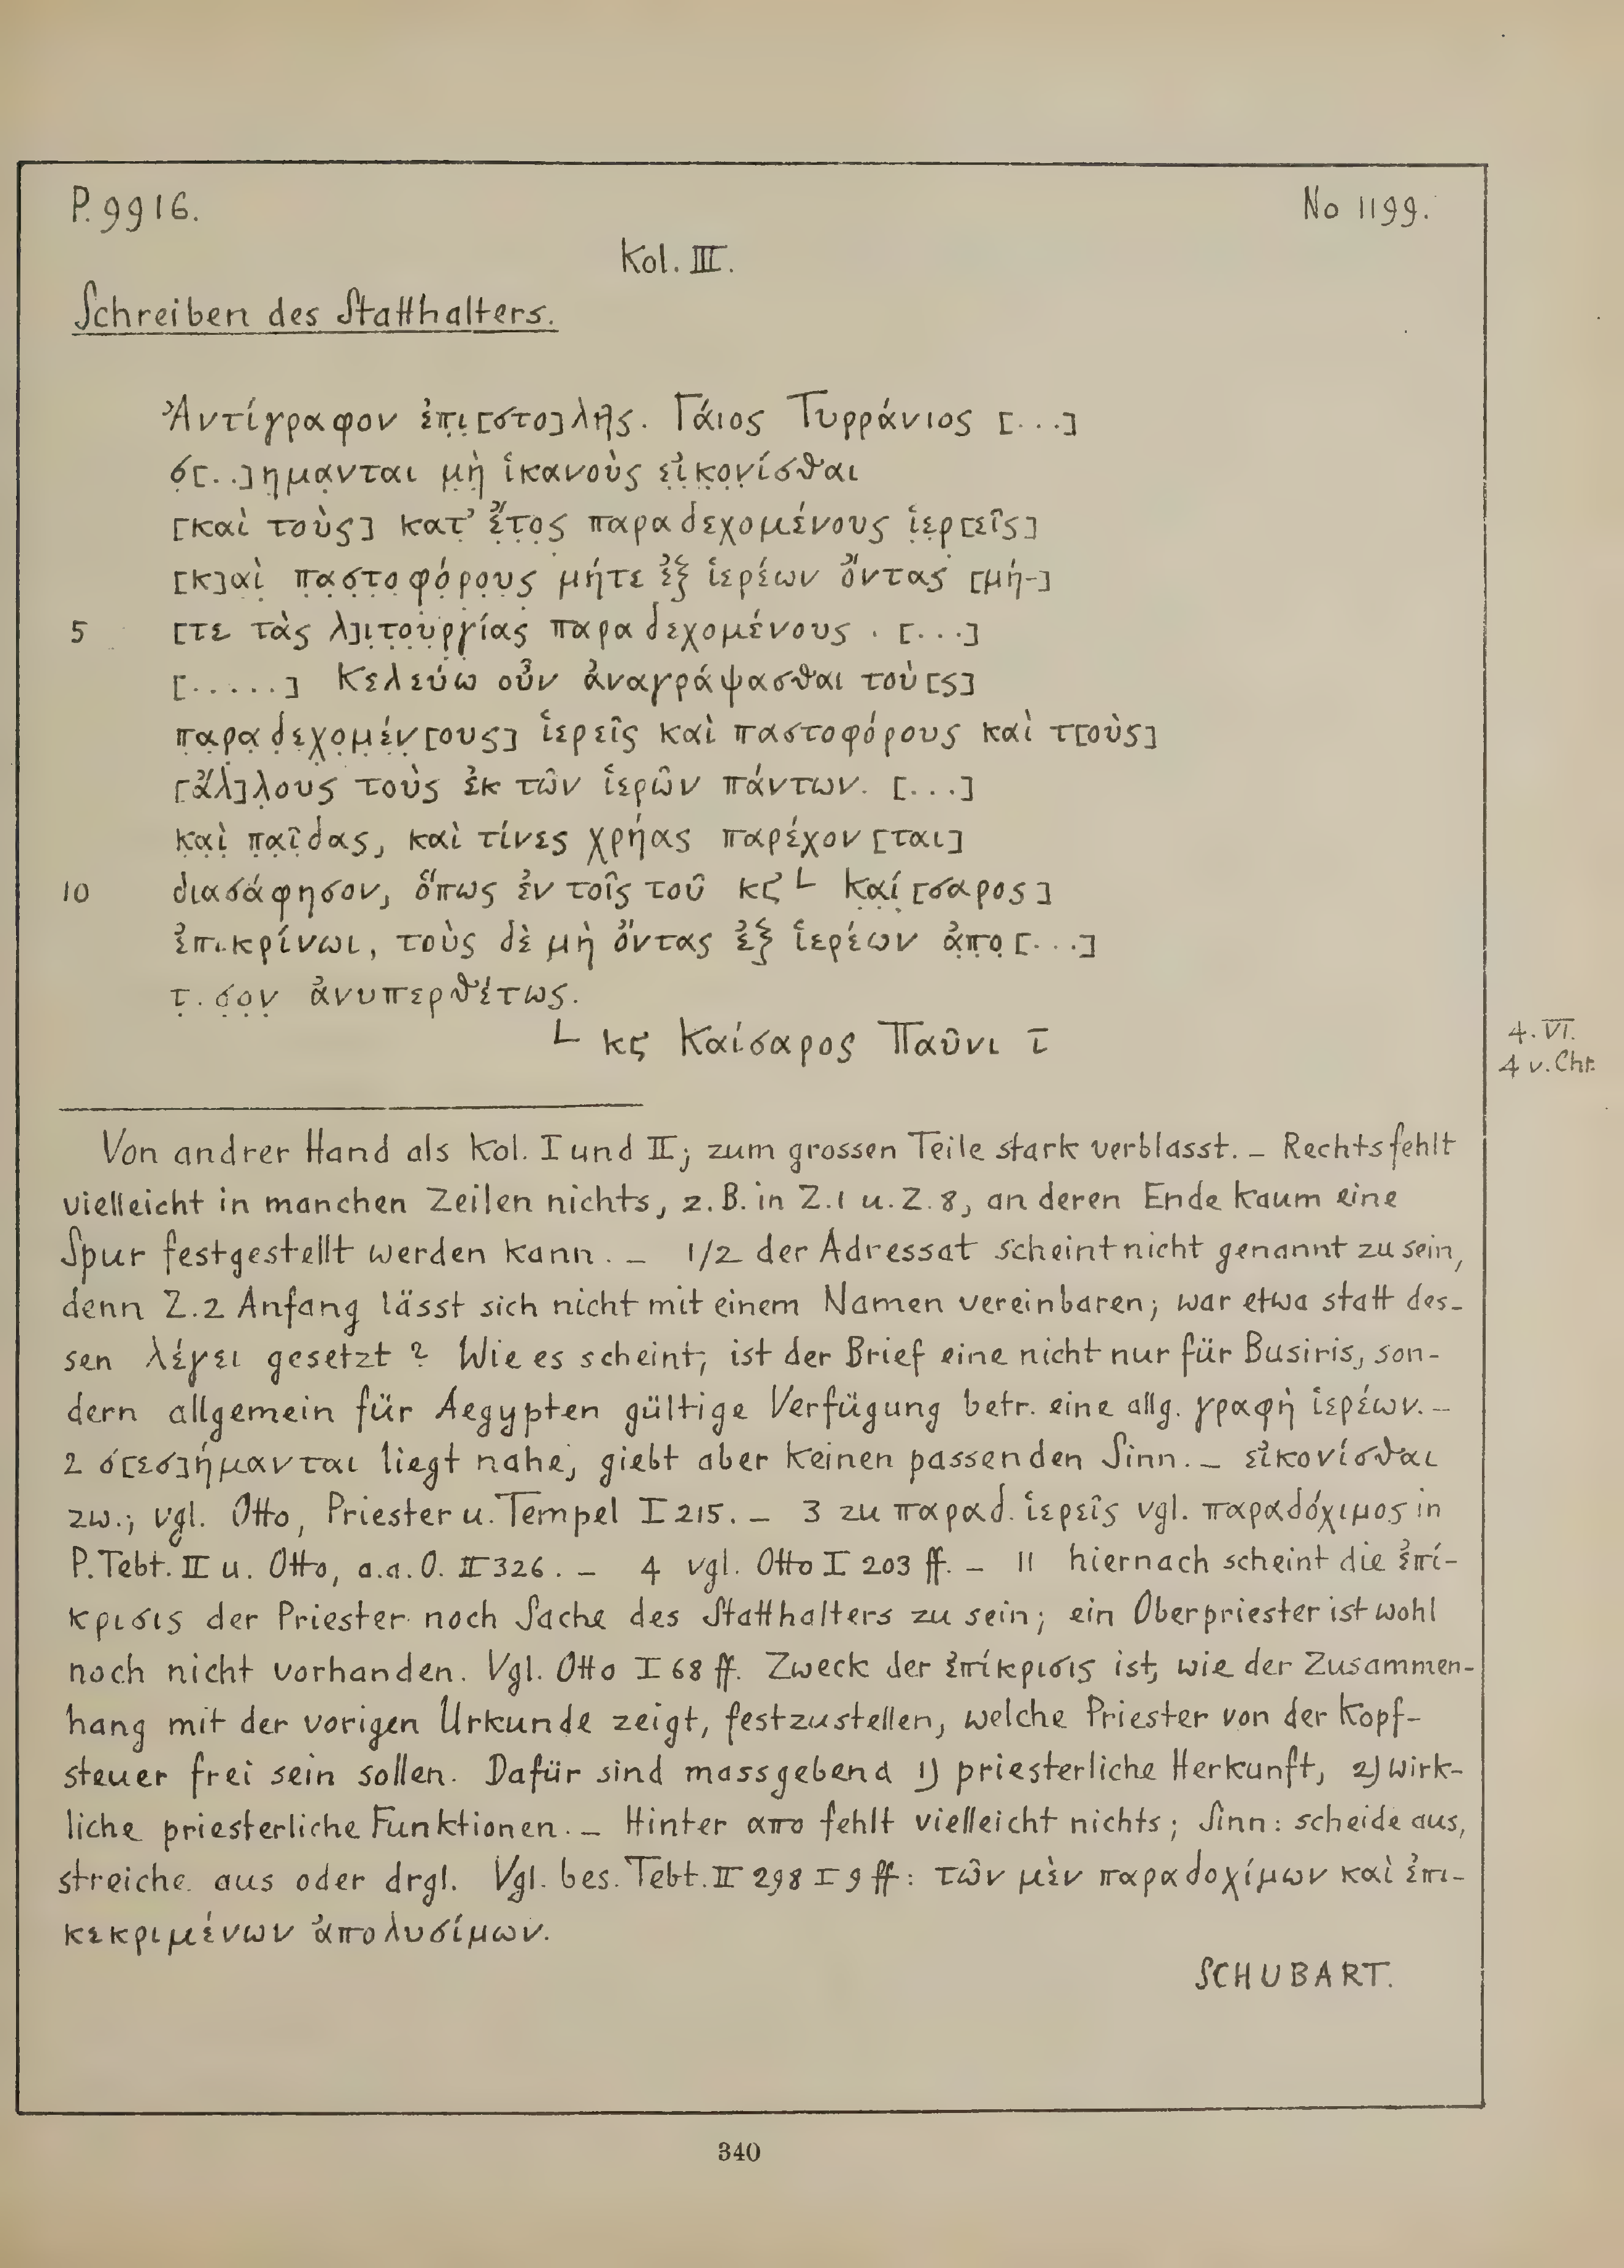 P. 9916.
No 1199.
Kol. III.
Schreiben des Statthalters.
Ἀντίγραφον ἐπ̣ι̣[στο]λῆς. Γάιος Τυρράνιος [...]
σ̣[..]η̣μα̣νται μ̣ὴ̣ ἱκανοὺς ε̣ἰ̣κ̣ο̣ν̣ίσθαι
[καὶ τοὺς] κατ̣’ ἔ̣τ̣ο̣ς παραδεχομένους ἱ̣ε̣ρ̣[εῖς]
[κ]α̣ὶ̣ π̣α̣σ̣τ̣ο̣φ̣ό̣ρ̣ο̣υ̣ς̣ μήτε ἐξ ἱερέων ὄντας [μή-]
5 [τε τὰς λ]ι̣τ̣ο̣υ̣ρ̣γ̣ίας παραδεχομένους . [...]
[.....] Κελεύω οὖν ἀναγράψασθαι τοὺ[ς]
π̣α̣ρ̣α̣δ̣ε̣χ̣ο̣μ̣έ̣ν̣[ους] ἱερεῖς καὶ παστοφόρους καὶ τ[οὺς]
[ἄλ]λ̣ους τοὺς ἐκ τῶν ἱερῶν πάντων. [...]
κ̣α̣ὶ̣ π̣α̣ῖ̣δας, καὶ τίνες χρήας παρέχον[ται]
10 διασάφησον, ὅπως ἐν τοῖς τοῦ κϛ L Κ̣α̣ί̣[σαρος]
ἐπικρίνωι, τοὺς δὲ μὴ ὄντας ἐξ ἱερέων ἀ̣π̣ο̣[...]
τ̣.σ̣ο̣ν̣ ἀνυπερθέτως.
L κϛ Καίσαρος Παῦνι ῑ
4. VI.
4 v. Chr.
Von andrer Hand als Kol. I und II; zum grossen Teile stark verblasst. – Rechts fehlt
vielleicht in manchen Zeilen nichts, z. B. in Z. 1 u. Z. 8, an deren Ende kaum eine
Spur festgestellt werden kann. – 1/2 der Adressat scheint nicht genannt zu sein,
denn Z. 2 Anfang lässt sich nicht mit einem Namen vereinbaren; war etwa statt des-
sen λέγει gesetzt? Wie es scheint, ist der Brief eine nicht nur für Busiris, son-
dern allgemein für Aegypten gültige Verfügung betr. eine allg. γραφὴ ἱερέων. –
2 σ[εσ]ήμανται liegt nahe, giebt aber keinen passenden Sinn. – εἰκονίσθαι
zw.; vgl. Otto, Priester u. Tempel I 215. – 3 zu παραδ. ἱερεῖς vgl. παραδόχιμος in
P. Tebt. II u. Otto, a.a.O. II 326. – 4 vgl. Otto I 203 ff. – 11 hiernach scheint die ἐπί-
κρισις der Priester noch Sache des Statthalters zu sein; ein Oberpriester ist wohl
noch nicht vorhanden. Vgl. Otto I 68 ff. Zweck der ἐπίκρισις ist, wie der Zusammen-
hang mit der vorigen Urkunde zeigt, festzustellen, welche Priester von der Kopf-
steuer frei sein sollen. Dafür sind massgebend 1) priesterliche Herkunft, 2) wirk-
liche priesterliche Funktionen. – Hinter απο fehlt vielleicht nichts; Sinn: scheide aus,
streiche aus oder drgl. Vgl. bes. Tebt. II 298 I 9 ff: τῶν μὲν παραδοχίμων καὶ ἐπι-
κεκριμένων ἀπολυσίμων.
SCHUBART.
340